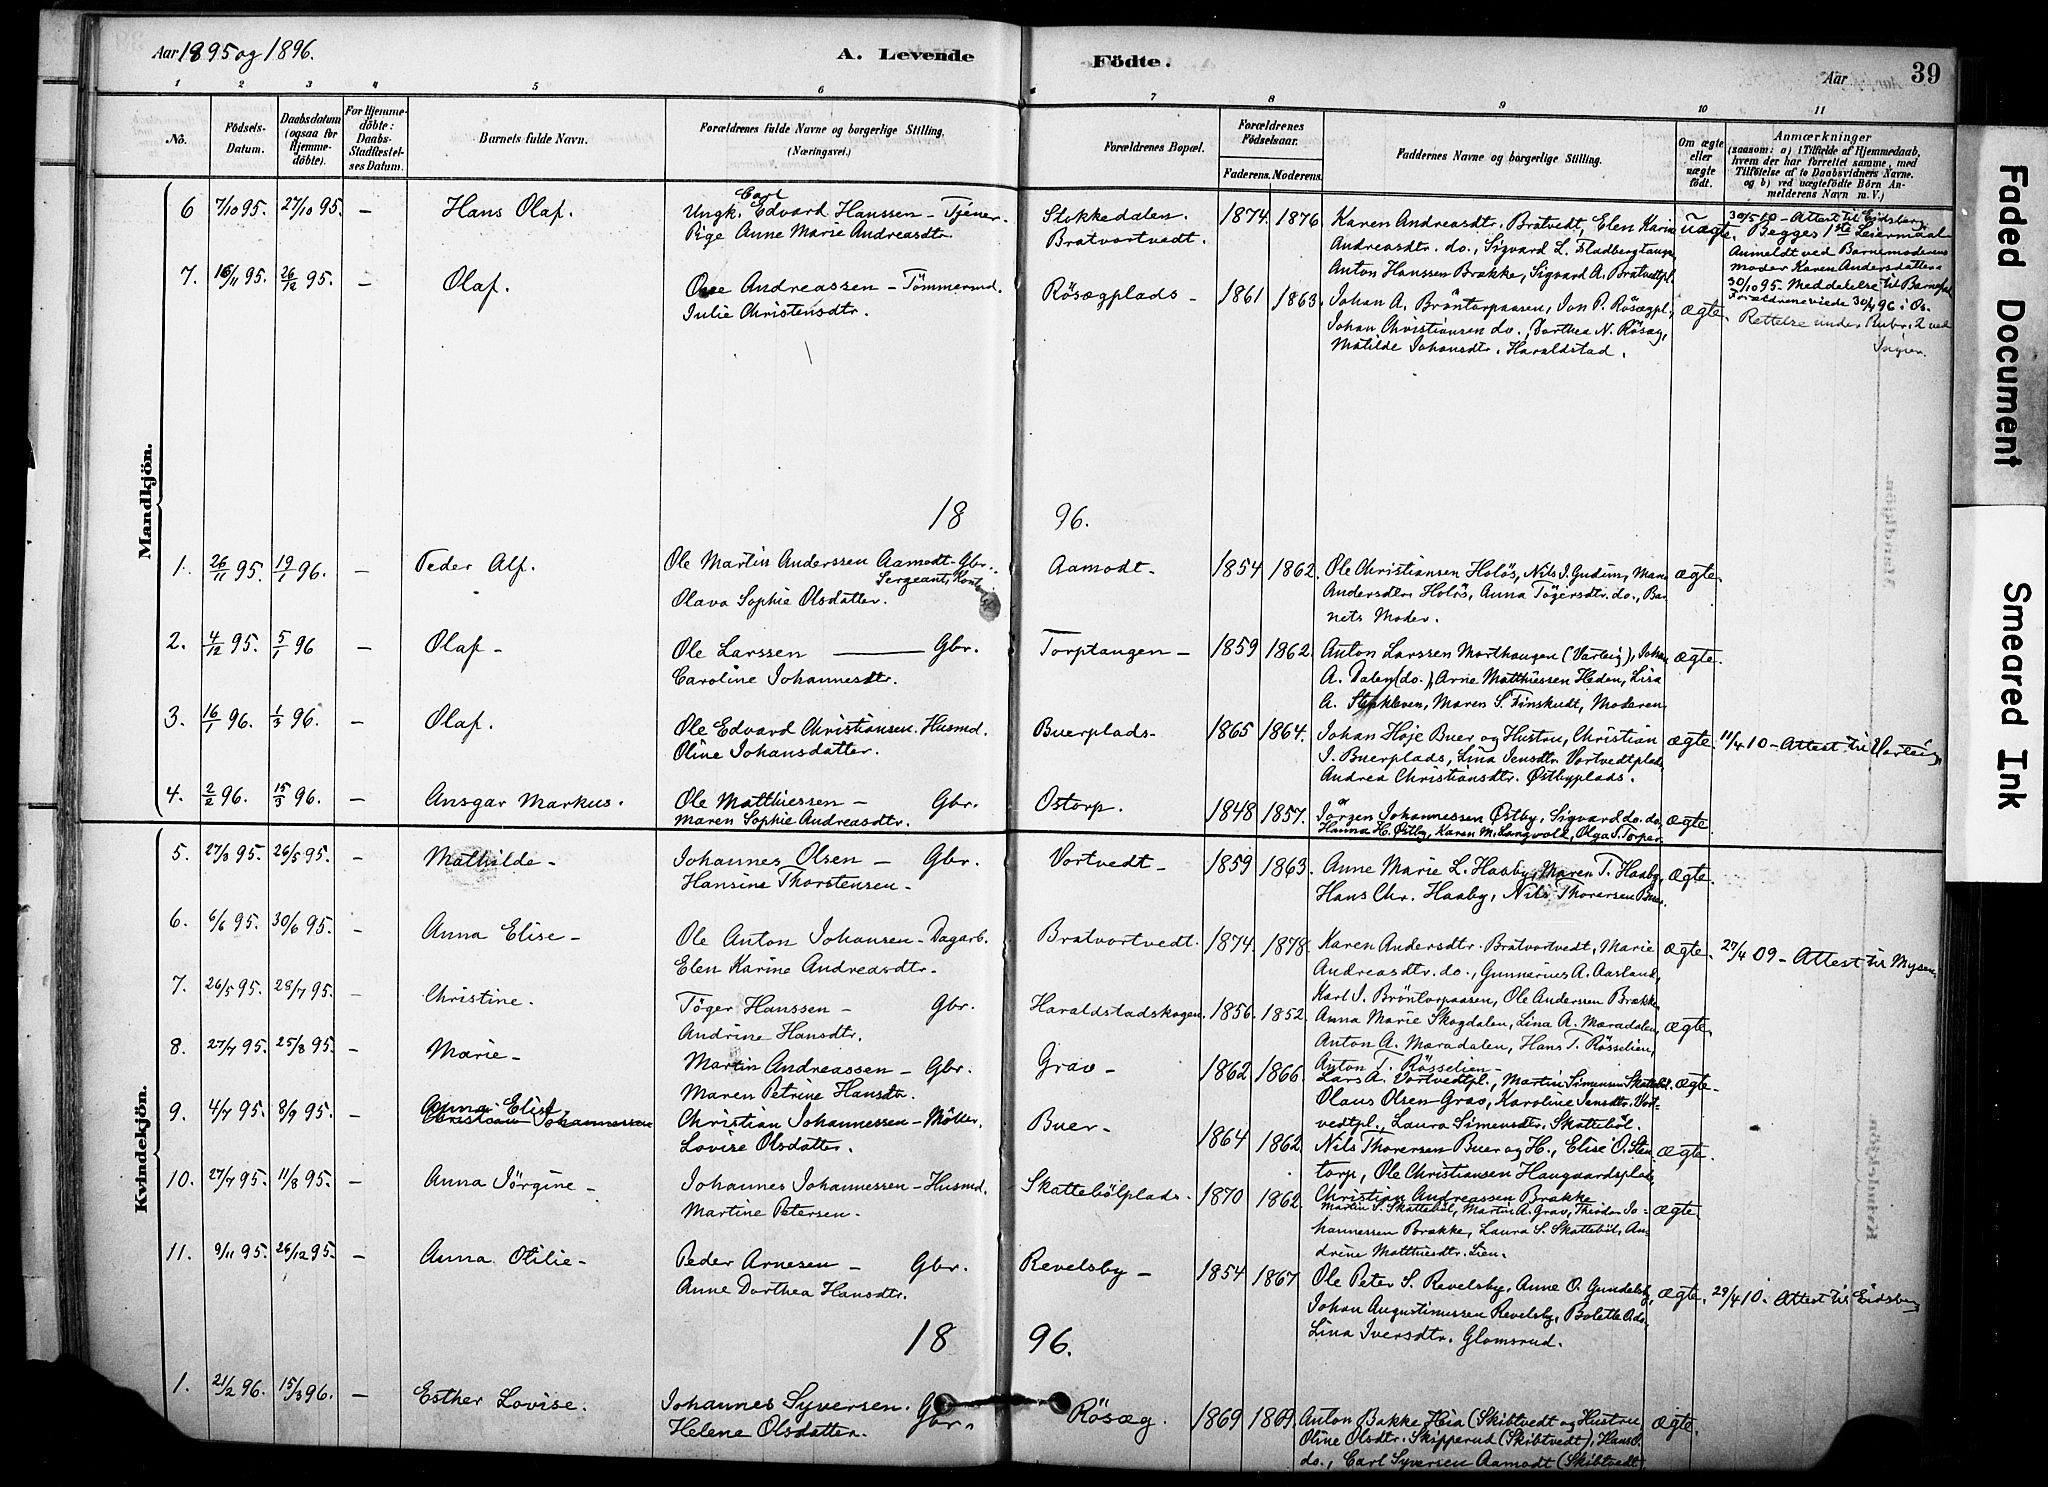 Aar 1895 og 1896.
A. Levende Födte.
Aar
39
1 2 3 4 5 6 7 8 9 10 11
No.
Födsels-Datum.
Daabsdatum (ogsaa for Hjemme-döbte).
For Hjemme-döbte: Daabs-Stadfæstel-ses Datum.
Barnets fulde Navn.
Forældrenes fulde Navne og borgerlige Stilling. (Næringsvei.)
Forældrenes Bopæl.
Forældrenes Födselsaar.
Faderens. Moderens.
Faddernes Navne og borgerlige Stilling.
Om ægte eller uægte födt.
Anmærkninger
(saasom: a) i Tilfælde af Hjemmedaab, hvem der har forrettet samme, med Tilföielse af to Daabsvidners Navne. og b) ved uægtefödte Börn An-melderens Navn m. V.)
Mandkjön.
6 7/10 95. 27/10 95. – Hans Olaf. Ungk. Carl Edvard Hanssen – Tjener. Stokkedalen. 1874. 1876. Karen Andreasdtr. Bratvedt, Elen Karine uægte. 30/5 10 – Attest til Eidsberg
Pige Anne Marie Andreasdtr. Bratvortvedt. Andreasdtr. do., Sigvard L. Fladbergtangen, Begges 1ste Leiermaal
Anton Hanssen Brække, Sigvard A. Bratvedtpl. Anmeldt ved Barnemoderens
moder Karen Andersdatter
30/10 95. Meddelelse til
7. 16/11 95. 26/12 95. – Olaf. Ole Andreassen – Tömmermd. Rösægplads – 1861 1863. Johan A. Bröntorpaasen, Jon P. Rösægpl., ægte. Forældrene viede 30/4 96 i Os.
Julie Christensdtr. Johan Christiansen do., Dorthea N. Rösæg, Rettelse under Rubr. 2 ved
Matilde Johansdtr. Haraldstad.
18 96.
1. 26/11 95. 19/1 96. – Peder Alf. Ole Martin Anderssen Aamodt – Gbr. Aamodt – 1854 1862. Ole Christiansen Holös, Nils J. Gudim, ægte.
Sergeant,
Olava Sophie Olsdatter. Andersdtr. Holös, Anna Tögersdtr. do., Bar-
nets Moder.
2. 4/12 95. 5/1 96 – Olaf – Ole Larssen – Gbr. Torptangen – 1859 1862. Anton Larssen Morthaugen (Varteig), Johan ægte.
Caroline Johannesdtr. A. Dalen (do.), Arne Matthiessen Heden, Lisa
A. Stenkleven, Maren S. Finskudt, Moderen
3. 16/1 96. 1/3 96. – Olaf. Ole Edvard Christiansen. Husmd. Buerplads – 1865 1864. Johan Höje Buer og Hustru, Christian ægte. 11/4 10 – Attest til Varteig.
Oline Johansdatter. J. Buerplads, Lina Jensdtr. Vortvedtplads,
Andrea Christiansdtr. Østbyplads.
4. 2/2 96. 15/3 96. – Ansgar Markus. Ole Matthiessen – Gbr. Ostorp. 1848 1857. Jörgen Johannessen Østby, Sigvard do. do. ægte.
Maren Sophie Andreasdtr. Hanna H. Østby, Karen M. Langvold, Olga S. Torper
Kvindekjön.
5. 27/3 95. 26/5 95. – Mathilde – Johannes Olsen – Gbr. Vortvedt – 1859 1863. Anne Marie L. Haaby, Maren T. Haaby, ægte.
Hansine Thorstensen – Hans Chr. Haaby, Nils Thorersen Buer.
6. 6/6 95. 30/6 95. – Anna Elise – Ole Anton Johansen – Dagarb. Bratvortvedt. 1874. 1878. Karen Andersdtr. Bratvortvedt, Marie ægte. 27/4 09 – Attest til Mysen.
Elen Karine Andreasdtr. Andreasdtr. do., Gunnarius A. Aasland,
Karl J. Bröntorpaasen, Ole Anderssen Brække,
7. 26/5 95. 28/7 95. – Christine. Töger Hanssen – Gbr. Haraldstadskogen. 1856. 1852. Anna Marie Skogdalen, Lina A. Maradalen, ægte.
Andrine Hansdtr. Anton A. Maradalen, Hans T. Rösselien,
Anton T. Rösselien –
8. 27/7 95. 25/8 95. – Marie – Martin Andreassen – Gbr. Grav – 1862 1866. Lars A. Vortvedtpl., Martin Simensen Skattebøl. ægte –
Maren Petrine Hansdtr. Olaus Olsen Grav, Karoline Jensdtr. Vort-
vedtpl., Laura Simensdtr. Skattebøl.
9. 4/7 95. 8/9 95. – Anna Elise. Christian Johannessen Christian Johannessen – Möller. Buer – 1864 1862. Nils Thorersen Buer og H., Elise O. Sten- ægte.
Lovise Olsdatter. torp, Ole Christiansen Haugaardsplads
Christian Andreassen Brække
10. 27/7 95. 11/8 95. – Anna Jörgine – Johannes Johannessen – Husmd. Skattebölplads. 1870 1862. Martin S. Skattebøl, Martin A. Grav, Theodor Jo- ægte.
Martine Petersen. hannessen Brække, Laura S. Skattebøl, An-
drine Matthiesdtr. Lien.
11. 9/11 95. 26/12 95. – Anna Otilie – Peder Arnesen – Gbr. Revelsby – 1854 1867. Ole Peter S. Revelsby, Anne O. Gundelsby, ægte. 29/4 10. Attest til Eidsberg
Anne Dorthea Hansdtr. Johan Augustinussen Revelsby, Bolette A. do,
Lina Iversdtr. Glomsrud.
18 96.
1. 21/2 96. 15/3 96. – Esther Lovise. Johannes Syversen. Gbr. Rösæg. 1869 1869. Anton Bakke Hia (Skibtvedt og Hustru ægte.
Helene Olsdatter. Oline Olsdtr. Skipperud (Skibtvedt), Hans O.
do., Carl Syversen Aamodt (Skibtvedt).
Faded Document
Smeared Ink